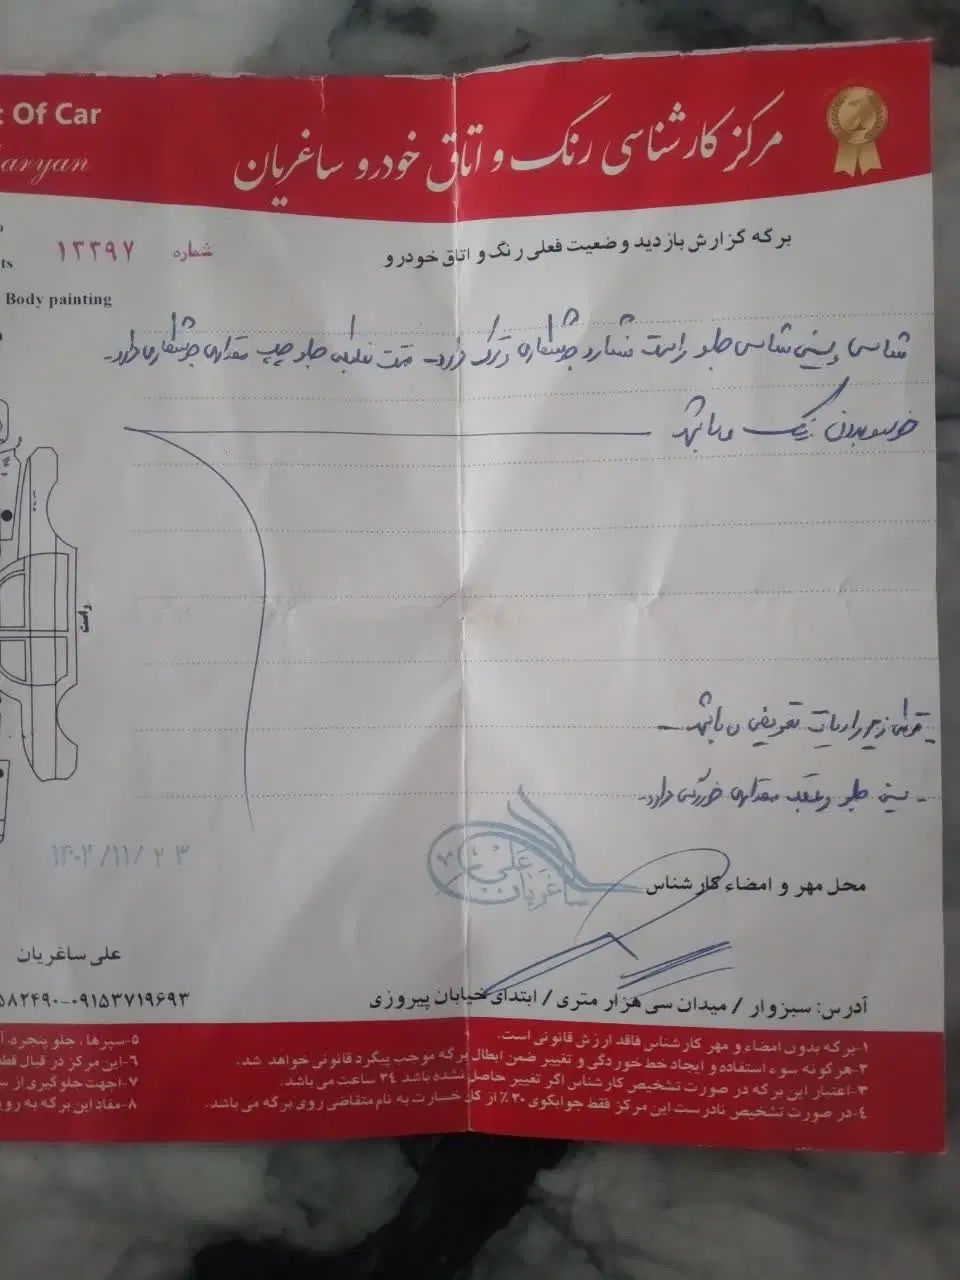 t Of Car
aryan
مرکز کارشناسی رنگ و اتاق خودرو ساغریان
برگه گزارش بازدید وضعیت فعلی رنگ و اتاق خودرو
شماره ۱۲۲۹۷
ts
Body painting
شناسی و سینی شناسی جلو راست جوشکاری و ترک دارد جلو چپ مقداری جوشکاری دارد
رنگ میباشد
راست
زیر راپیات تعویض میباشد
- سینی جلو و عقب مقداری خوردگی دارد
۱۴۰۲/۱۱/۲۳
علی
ساغریان
محل مهر و امضاء کارشناس
علی ساغریان
۵۸۲۴۹۰-۰۹۱۵۳۷۱۹۶۹۳
آدرس: سبزوار / میدان سی هزار متری / ابتدای خیابان پیروزی
۱-برگه بدون امضاء و مهر کارشناس فاقد ارزش قانونی است.
۲-هرگونه سوء استفاده و ایجاد خط خوردگی و تغییر ضمن ابطال برگه موجب پیگرد قانونی خواهد شد.
۳-اعتبار این برگه در صورت تشخیص کارشناس اگر تغییر حاصل نشده باشد ۲۴ ساعت می باشد.
۴-در صورت تشخیص نادرست این مرکز فقط جوابگوی ۲۰٪ از کل خسارت به نام متقاضی روی برگه می باشد.
۵-سپرها، جلو پنجره، آ
۶-این مرکز در قبال قطع
۷-جهت جلوگیری از س
۸-مفاد این برگه به رویت